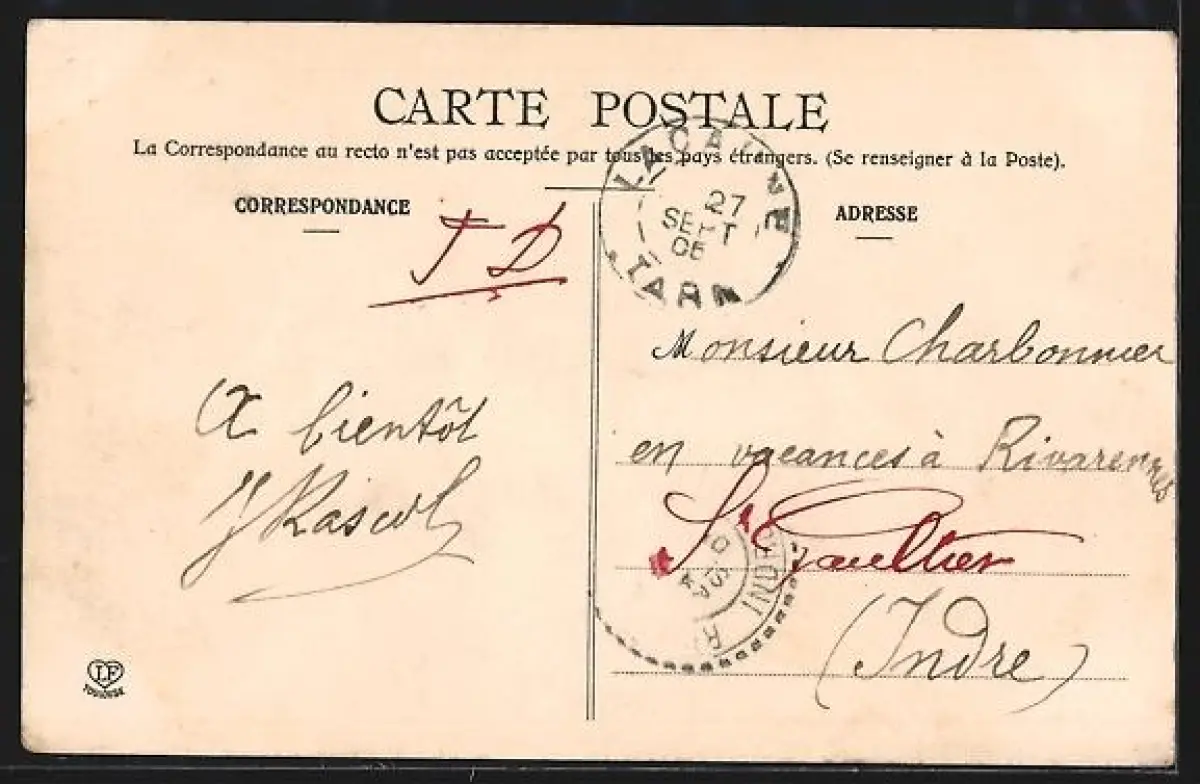 CARTE POSTALE
La Correspondance au recto n'est pas acceptée par tous les pays étrangers. (Se renseigner à la Poste).
CORRESPONDANCE
ADRESSE
T D
LACAUNE
27
SEPT
06
TARN
A bientôt
Monsieur Charbonnier
en vacances à Rivarennes
St Gaultier
(Indre)
INDRE
LF
TOULOUSE